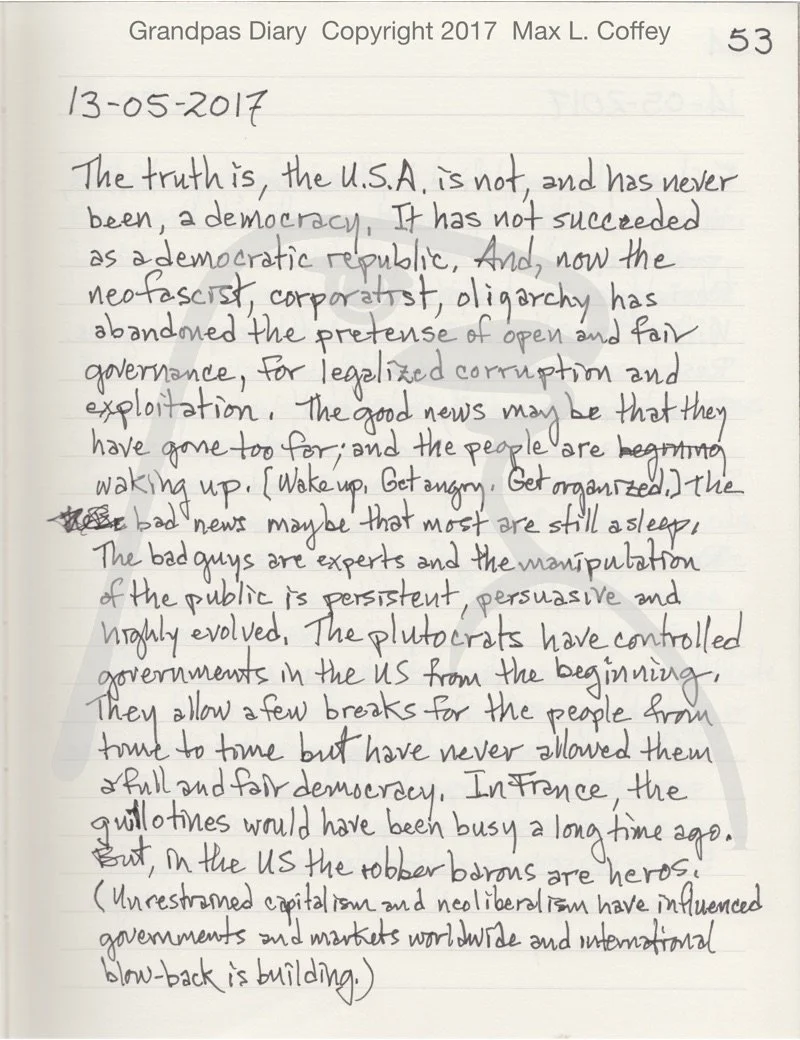 Grandpas Diary Copyright 2017 Max L. Coffey
53
13-05-2017
The truth is, the U.S.A. is not, and has never
been, a democracy. It has not succeeded
as a democratic republic. And, now the
neofascist, corporatist, oligarchy has
abandoned the pretense of open and fair
governance, for legalized corruption and
exploitation. The good news may be that they
have gone too far; and the people are begining
waking up. [Wake up. Get angry. Get organized.] The
bad news maybe that most are still asleep.
The bad guys are experts and the manipulation
of the public is persistent, persuasive and
highly evolved. The plutocrats have controlled
governments in the US from the beginning.
They allow a few breaks for the people from
time to time but have never allowed them
a full and fair democracy. In France, the
guillotines would have been busy a long time ago.
But, in the US the robber barons are heros.
(Unrestrained capitalism and neoliberalism have influenced
governments and markets worldwide and international
blow-back is building.)